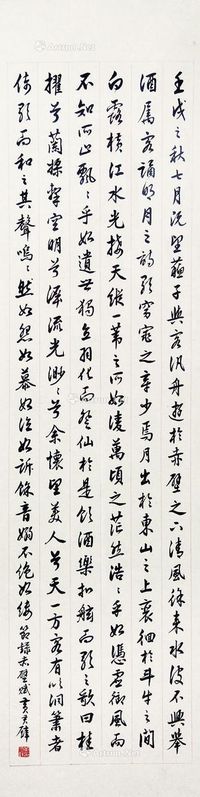 壬戌之秋七月既望蘇子與客汎舟遊於赤壁之下清風徐来水波不興舉
酒屬客誦明月之詩歌窈窕之章少焉月出於東山之上裵徊於斗牛之間
白露橫江水光接天縱一葦之所如凌萬頃之茫然浩〻乎如憑虛御風而
不知所止飄〻乎如遺世獨立羽化而登仙於是飲酒樂扣舷而歌之歌曰桂
擢兮蘭槳擊空明兮溯流光渺〻兮余懷望美人兮天一方客有吹洞簫者
倚歌而和之其聲嗚〻然如怨如慕如泣如訴餘音嫋不絕如縷 節錄赤壁賦